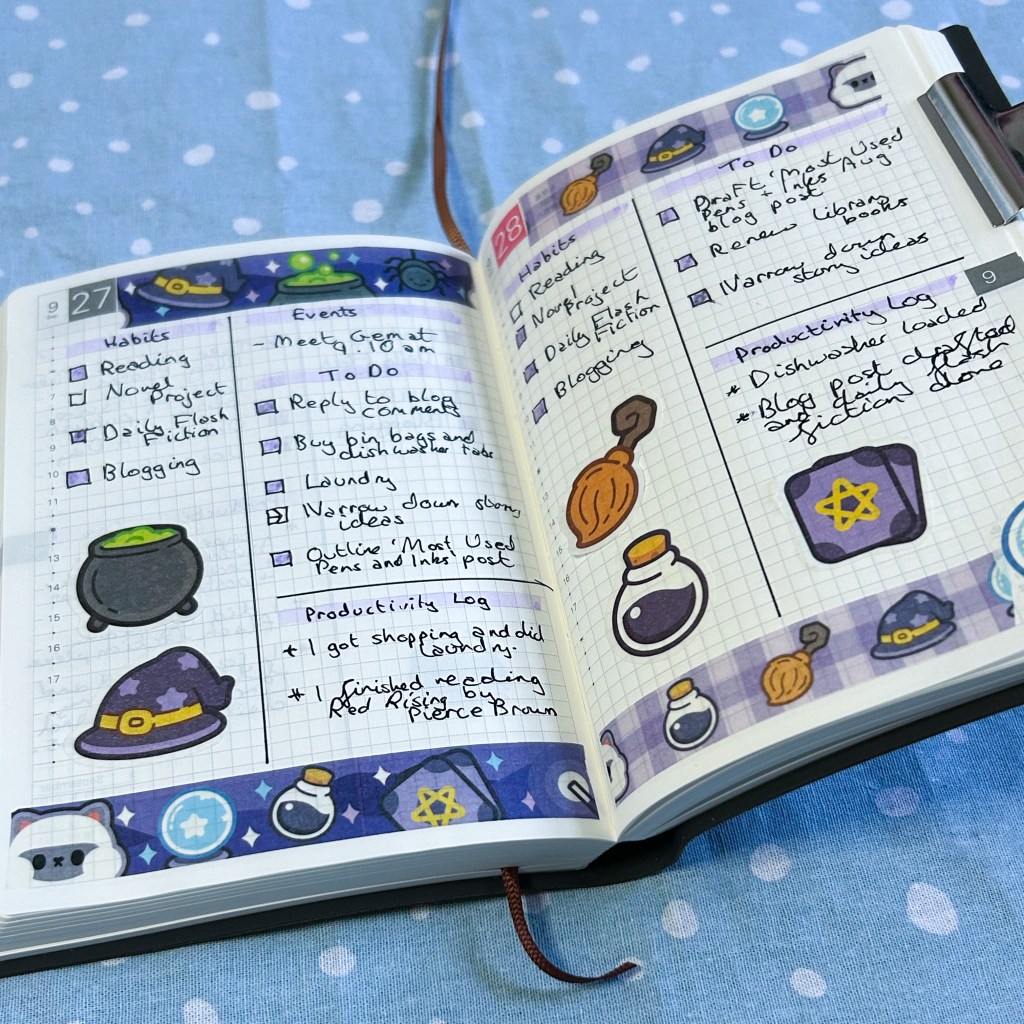 9
27
Habits
Reading
Novel
Project
Daily Flash
Fiction
Blogging
7
8
9
10
11
13
14
15
16
17
Events
- Meet Gem at
9.10 am
To Do
Reply to blog
comments
Buy bin bags and
dishwasher tabs
Laundry
Narrow down story
ideas
Outline 'Most Used
Pens and Inks' post
Productivity Log
* I got shopping and did
Laundry.
* I finished reading
Red Rising by
Pierce Brown
28
Habits
Reading
Novel Project
Daily Flash
Fiction
Blogging
13
14
15
16
17
To Do
Draft 'Most Used
Pens + Inks Aug
blog post
Renew library
books
Narrow down
story ideas
9
Productivity Log
* Dishwasher loaded
* Blog post drafted
and daily flash
fiction done